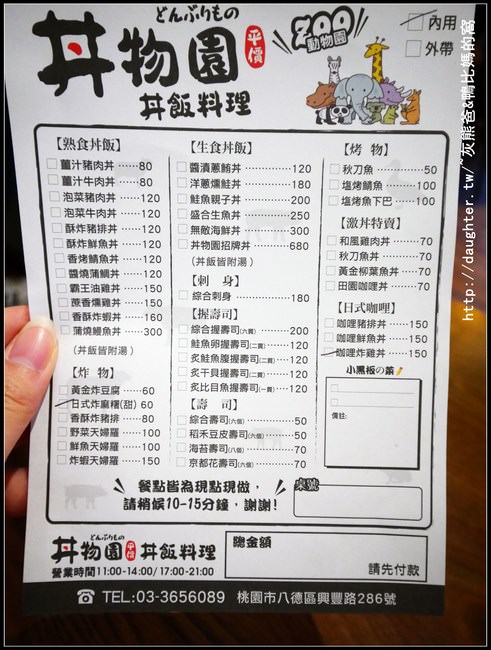 どんぶりもの
丼物園
平價
丼飯料理
ZOO
動物園
內用
外帶
【熟食丼飯】
薑汁豬肉丼……80
薑汁牛肉丼……80
泡菜豬肉丼……120
泡菜牛肉丼……120
酥炸豬排丼……120
酥炸鮮魚丼……120
香烤鯖魚丼……120
醬燒蒲鯛丼……120
霸王油雞丼……150
蔗香燻雞丼……150
香酥炸蝦丼……160
蒲燒鰻魚丼……300
(丼飯皆附湯)
【炸 物】
黃金炸豆腐……60
日式炸麻糬(甜) 60
香酥炸豬排……80
野菜天婦羅……100
鮮魚天婦羅……100
炸蝦天婦羅……150
【生食丼飯】
醬漬蔥鮪丼……120
洋蔥燻鮭丼……180
鮭魚親子丼……200
盛合生魚丼……250
無敵海鮮丼……300
丼物園招牌丼……680
(丼飯皆附湯)
【刺 身】
綜合刺身……180
【握壽司】
綜合握壽司(六貫)……200
鮭魚卵握壽司(二貫)…120
炙鮭魚腹握壽司(二貫)…120
炙干貝握壽司(二貫)…120
炙比目魚握壽司(一貫)…120
【壽 司】
綜合壽司(六個)……50
稻禾豆皮壽司(六個)……50
海苔壽司(八個)……70
京都花壽司(六個)……70
【烤 物】
秋刀魚……50
塩烤鯖魚……100
塩烤魚下巴……100
【激丼特賣】
和風雞肉丼……70
秋刀魚丼……70
黃金柳葉魚丼……70
田園咖哩丼……70
【日式咖哩】
咖哩豬排丼……150
咖哩鮮魚丼……150
咖哩炸雞丼……150
小黑板の菜
備註:
餐點皆為現點現做,
請稍候10-15分鐘,謝謝!
桌號
どんぶりもの
丼物園 平價 丼飯料理
營業時間11:00-14:00/17:00-21:00
總金額
請先付款
TEL:03-3656089 桃園市八德區興豐路286號
http://daughter.tw/~灰熊爸&鴨比媽的窩